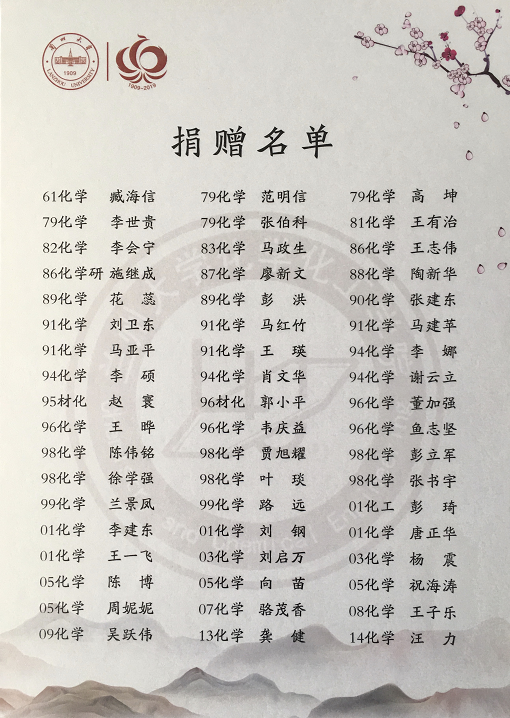 兰州大学
1909
LANZHOU UNIVERSITY
1909-2019
捐赠名单
61化学 臧海信 79化学 范明信 79化学 高 坤
79化学 李世贵 79化学 张伯科 81化学 王有治
82化学 李会宁 83化学 马政生 86化学 王志伟
86化学研 施继成 87化学 廖新文 88化学 陶新华
89化学 花 蕊 89化学 彭 洪 90化学 张建东
91化学 刘卫东 91化学 马红竹 91化学 马建苹
91化学 马亚平 91化学 王 瑛 94化学 李 娜
94化学 李 硕 94化学 肖文华 94化学 谢云立
95材化 赵 寰 96材化 郭小平 96化学 董加强
96化学 王 晔 96化学 韦庆益 96化学 鱼志坚
98化学 陈伟铭 98化学 贾旭耀 98化学 彭立军
98化学 徐学强 98化学 叶 琰 98化学 张书宇
99化学 兰景凤 99化学 路 远 01化工 彭 琦
01化学 李建东 01化学 刘 钢 01化学 唐正华
01化学 王一飞 03化学 刘启万 03化学 杨 震
05化学 陈 博 05化学 向 苗 05化学 祝海涛
05化学 周妮妮 07化学 骆茂香 08化学 王子乐
09化学 吴跃伟 13化学 龚 健 14化学 汪 力